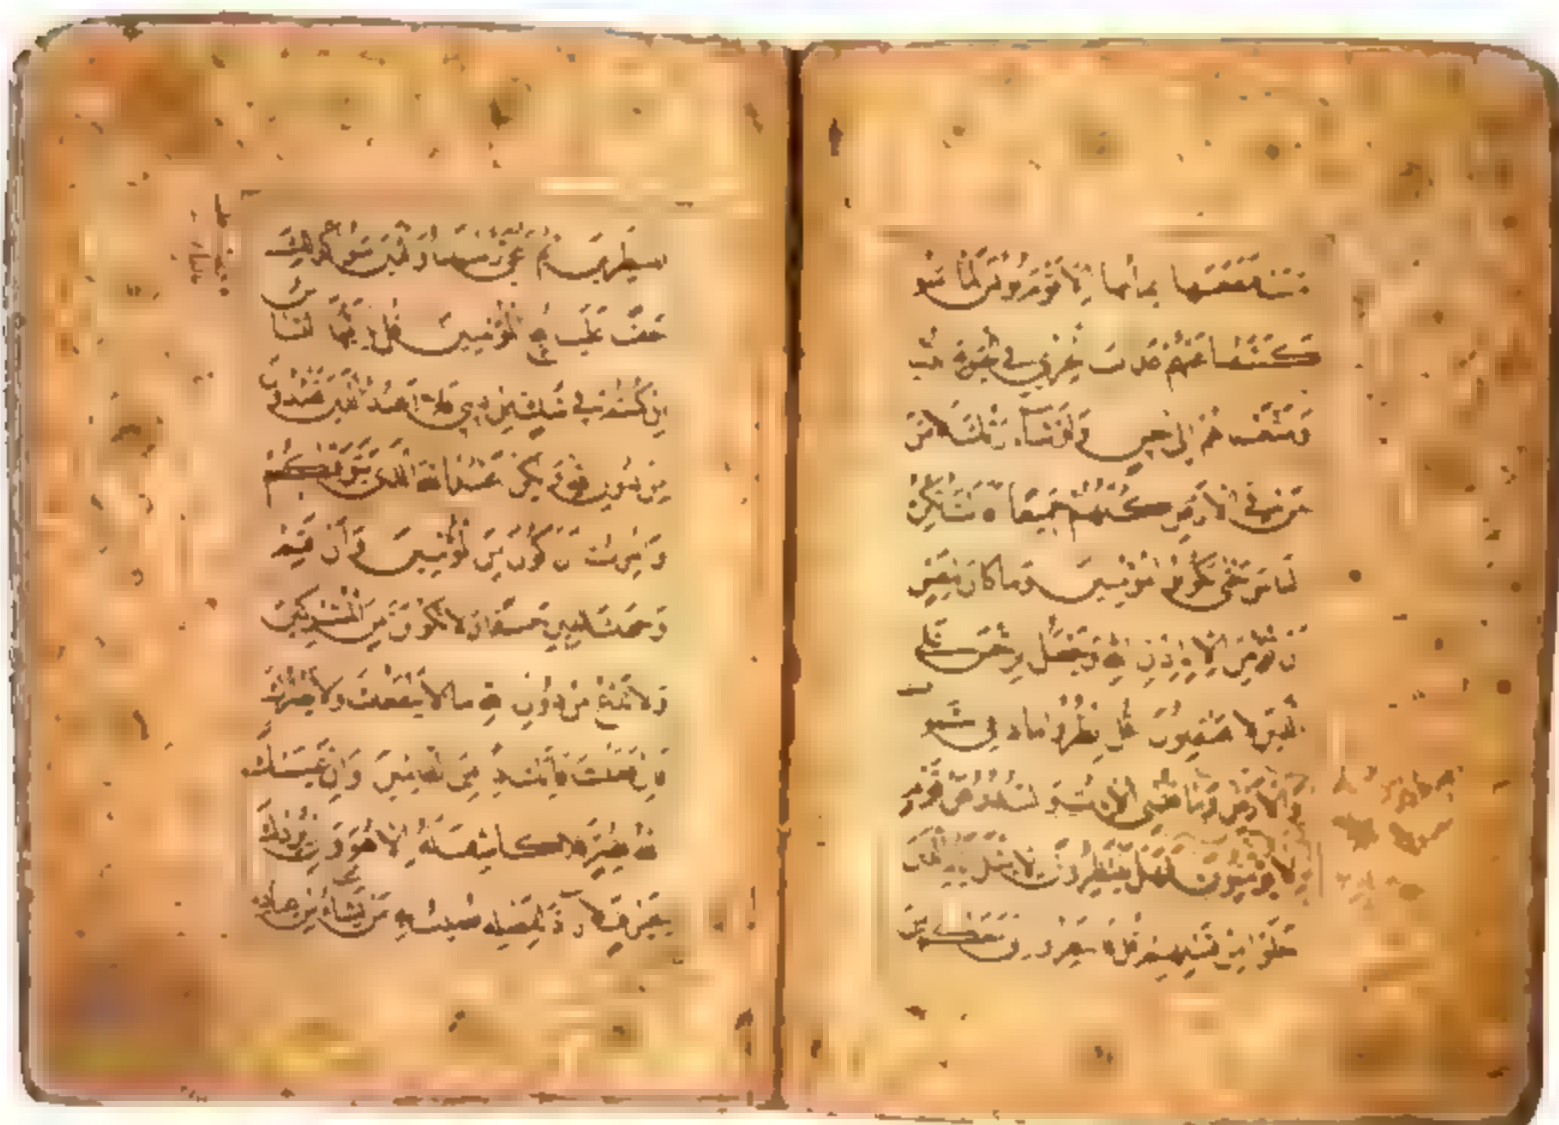 فنفعها ايمانها الا قوم يونس لما امنو
كشفنا عنهم عذاب الخزي في الحيوة الد
ومتعنهم الى حين ولو شاء ربك لامن
من في الارض كلهم جميعا افانت تكره
الناس حتى يكونوا مؤمنين وما كان لنفس
ان تؤمن الا باذن الله ويجعل الرجس على
الذين لا يعقلون قل انظروا ماذا في السمو
والارض وما تغنى الايت والنذر عن قوم
لا يؤمنون فهل ينتظرون الا مثل ايام الذين
خلوا من قبلهم قل فانتظروا انى معكم من
المنتظرين ثم ننجى رسلنا والذين امنوا كذلك
حقا علينا ننج المؤمنين قل يايها الناس
ان كنتم في شك من دينى فلا اعبد الذين تعبدون
من دون الله ولكن اعبد الله الذى يتوفكم
وامرت ان اكون من المؤمنين وان اقم
وجهك للدين حنيفا ولا تكونن من المشركين
ولا تدع من دون الله ما لا ينفعك ولا يضرك
فان فعلت فانك اذا من الظلمين وان يمسسك
الله بضر فلا كاشف له الا هو وان يردك
بخير فلا راد لفضله يصيب به من يشاء من عباده